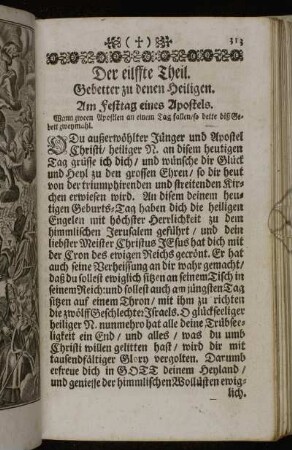 ❊ ( † ) ❊ 313
Der eilffte Theil.
Gebetter zu denen Heiligen.
Am Festtag eines Apostels.
Wann zween Apostlen an einem Tag fallen/ so bette diß Ge-
bett zweymahl.
O Du außerwöhlter Jünger und Apostel
Christi/ heiliger N. an disem heutigen
Tag grüsse ich dich/ und wünsche dir Glück
und Heyl zu den grossen Ehren/ so dir heut
von der triumphirenden und streitenden Kir-
chen erwiesen wird. An disem deinem heu-
tigen Geburts-Tag haben dich die heiligen
Engelen mit höchster Herrlichkeit zu dem
himmlischen Jerusalem geführt/ und dein
liebster Meister Christus JEsus hat dich mit
der Cron des ewigen Reichs gecrönt. Er hat
auch seine Verheissung an dir wahr gemacht/
daß du sollest ewiglich sitzen an seinem Tisch in
seinem Reich: und sollest auch am jüngsten Tag
sitzen auf einem Thron/ mit ihm zu richten
die zwölff Geschlechter Israels. O glückseeliger
heiliger N. nunmehro hat alle deine Trübsee-
ligkeit ein End/ und alles/ was du umb
Christi willen gelitten hast/ wird dir mit
tausendfältiger Glory vergolten. Darumb
erfreue dich in GOTT deinem Heyland/
und geniesse der himmlischen Wollüsten ewig-
lich.